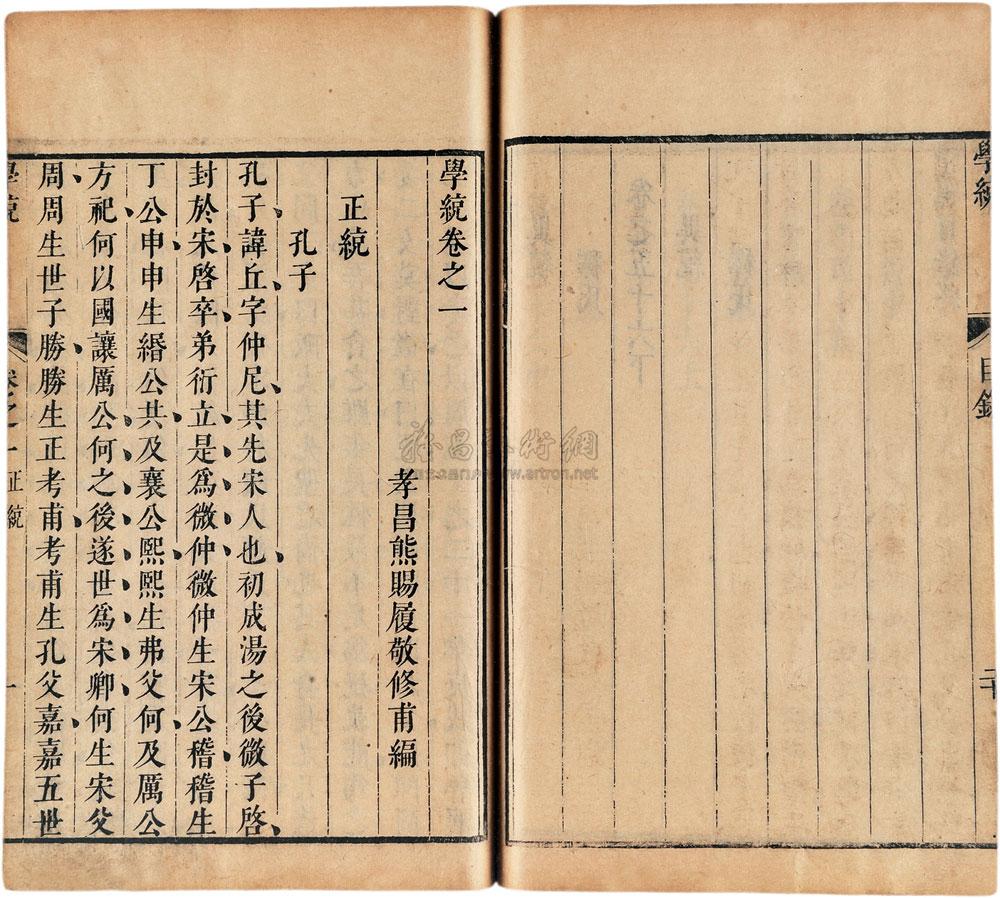 學統
目錄
二十
學統卷之一
孝昌熊賜履敬修甫編
正統
孔子
孔子諱丘字仲尼其先宋人也初成湯之後微子啓
封於宋啓卒弟衍立是爲微仲微仲生宋公稽稽生
丁公申申生緡公共及襄公熙熙生弗父何及厲公
方祀何以國讓厲公何之後遂世爲宋卿何生宋父
周周生世子勝勝生正考甫考甫生孔父嘉嘉五世
學統
卷之一
正統
一
www.artron.net